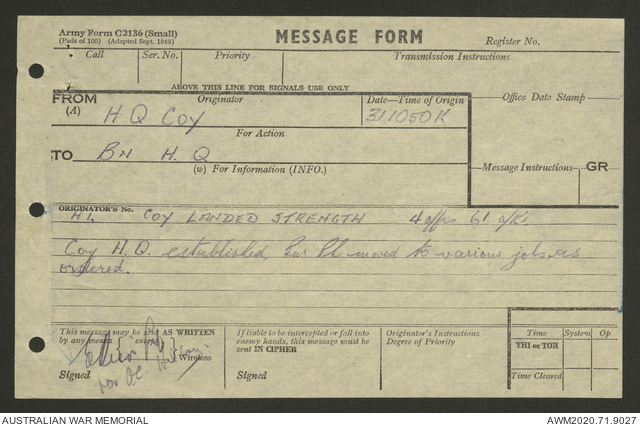 Army Form C2136 (Small)
(Pads of 100) (Adapted Sept. 1943)
MESSAGE FORM
Register No.
Call
Ser. No.
Priority
Transmission Instructions
ABOVE THIS LINE FOR SIGNALS USE ONLY
FROM
(A)
Originator
H Q Coy
Date—Time of Origin
311050K
Office Date Stamp
For Action
TO
Bn H. Q
(w) For Information (INFO.)
Message Instructions
GR
ORIGINATOR'S No.
H1. COY LANDED STRENGTH 4 offrs 61 o/Rs.
Coy H.Q. established, Pl moved to various jobs as
ordered.
This message may be sent AS WRITTEN
by any means except
Wireless
Signed
for OC
If liable to be intercepted or fall into
enemy hands, this message must be
sent IN CIPHER
Signed
Originator's Instructions
Degree of Priority
Time
System
Op
THI or TOR
Time Cleared
AUSTRALIAN WAR MEMORIAL
AWM2020.71.9027